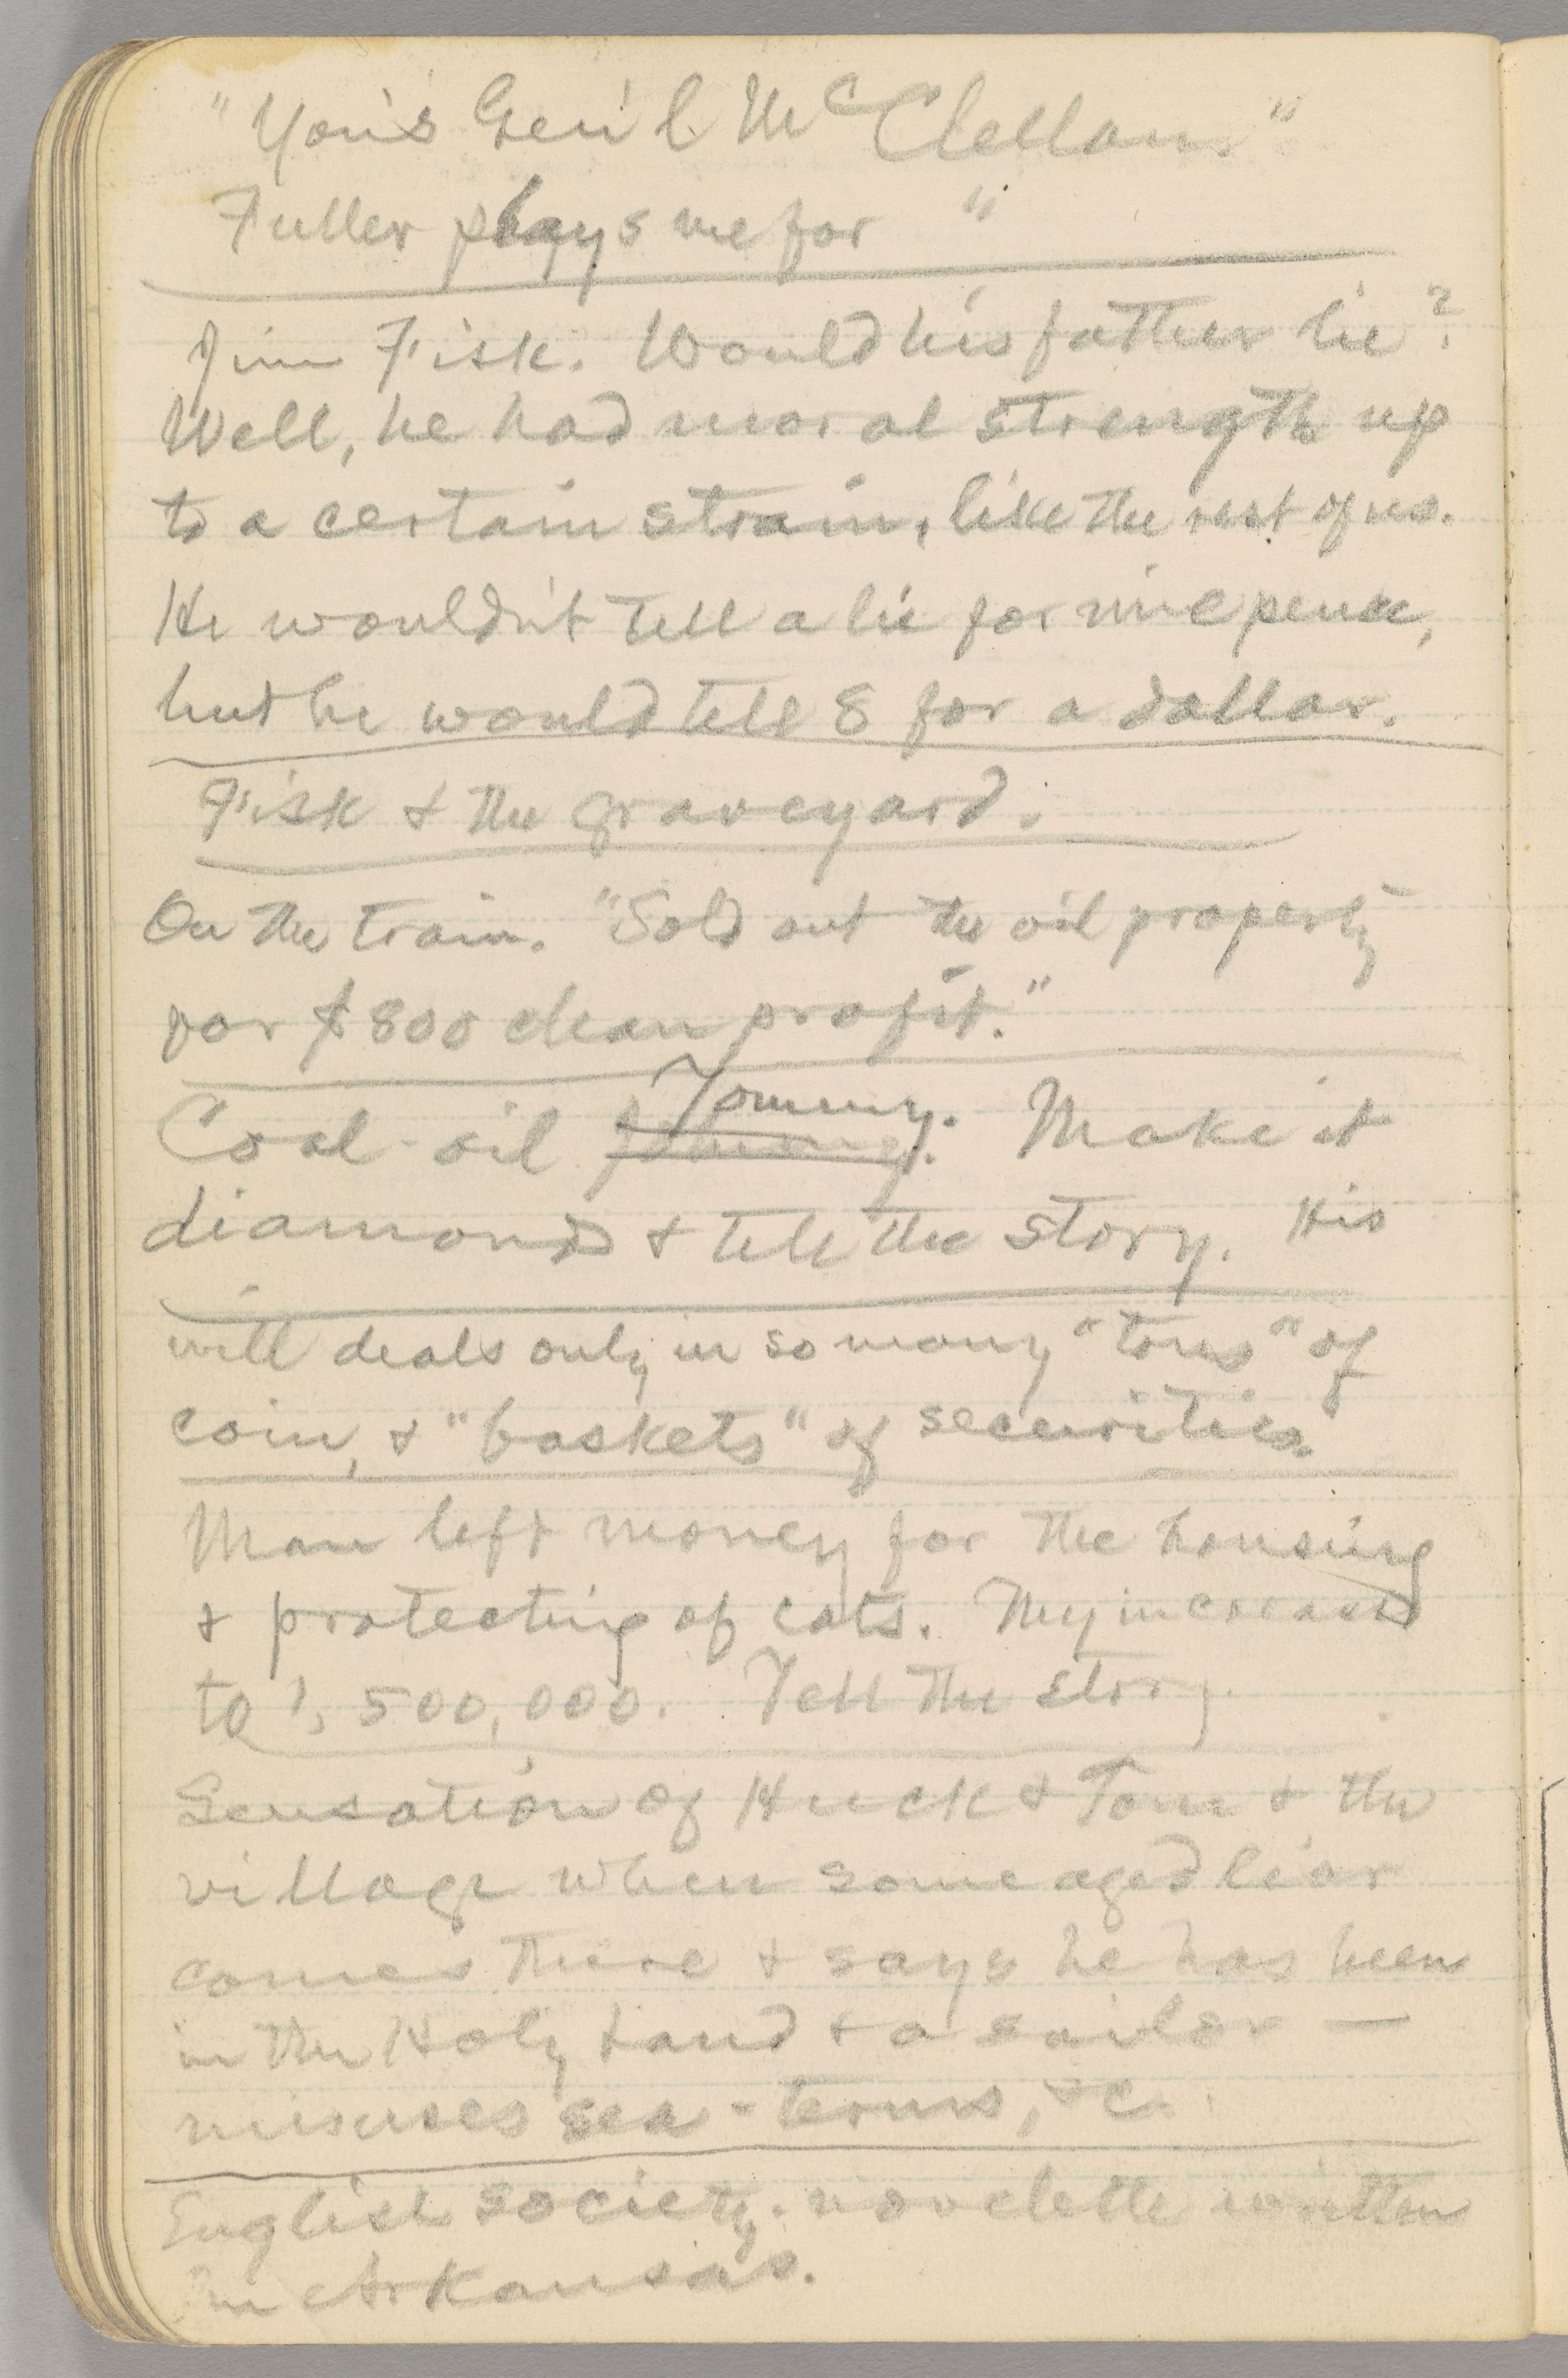 "You's Gen'l McClellan."
Fuller plays me for "
Jim Fisk. Would his father lie?
Well, he had moral strength up
to a certain strain, like the rest of us.
He wouldn't tell a lie for ninepence,
but he would tell 8 for a dollar.
Fisk & the graveyard.
On the train. "Sold out the oil property
for $800 clean profit."
Coal-oil Tommy. Make it
diamond & tell the story. His
will deals only in so many "tons" of
coin, & "baskets" of securities.
Man left money for the housing
& protecting of cats. They increased
to 1,500,000. Tell the story.
Sensation of Huck & Tom & the
village when some aged liar
comes there & says he has been
in the Holy Land & a sailor —
misuses sea-terms, &c.
English society-novelette written
in Arkansas.